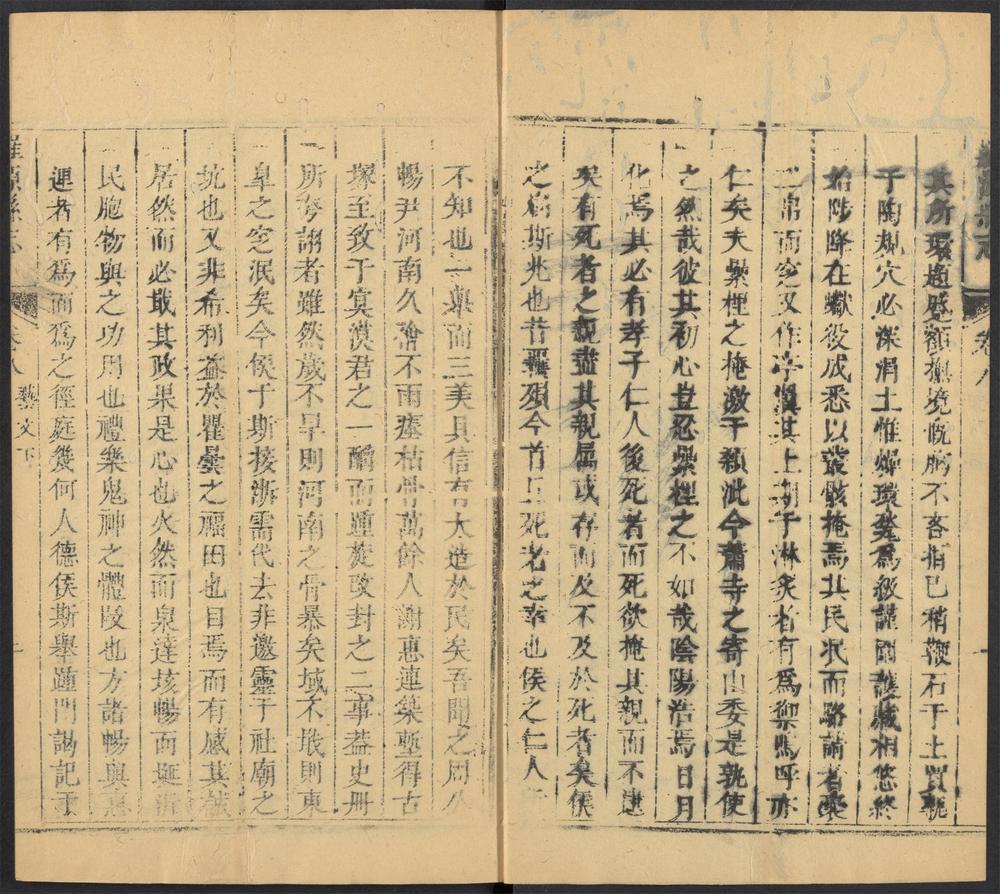 其所環適啓顧撫境慨胸不吝指已稍鞭石于土買甎
于陶規穴必深涓土惟燥環甃爲級謹閟護藏相悠終
始陟降在嶽役成悉以叢骸掩焉其民氓而路請者槩
二席而窆又作亭冀其上期于淋炙者有爲禦嗚呼亦
仁矣夫虆梩之掩激于顙泚今蕭寺之寄山委是孰使
之然哉彼其初心豈忍虆梩之不如哉陰陽浩焉日月
化焉其必有孝子仁人後死者而死欲掩其親而不逮
矣有死者之親盡其親屬或存而及不及於死者矣侯
之爲斯兆也昔羈殯今首丘死者之幸也侯之仁人
不知也一舉而三美具信有大造於民矣吾聞之周
暢尹河南久澹不雨瘞枯骨萬餘人謝惠連築塹得古
塚至致于冥漠君之一酹而踵焚改封之二事葢史冊
所夸詡者雖然歲不旱則河南之骨暴矣域不塹則東
阜之窆泯矣今侯于斯按浙需代去非邀靈于社廟之
抗也又非希利益於瞿曇之福田也目焉而有感其
居然而必取其政果是心也火然而泉達垓暢而埏
民胞物與之功周也禮樂鬼神之體段也方諸暢與惠
連者有爲而爲之徑庭幾何人德侯斯舉踵門謁記于
羅源縣志
卷八
藝文下